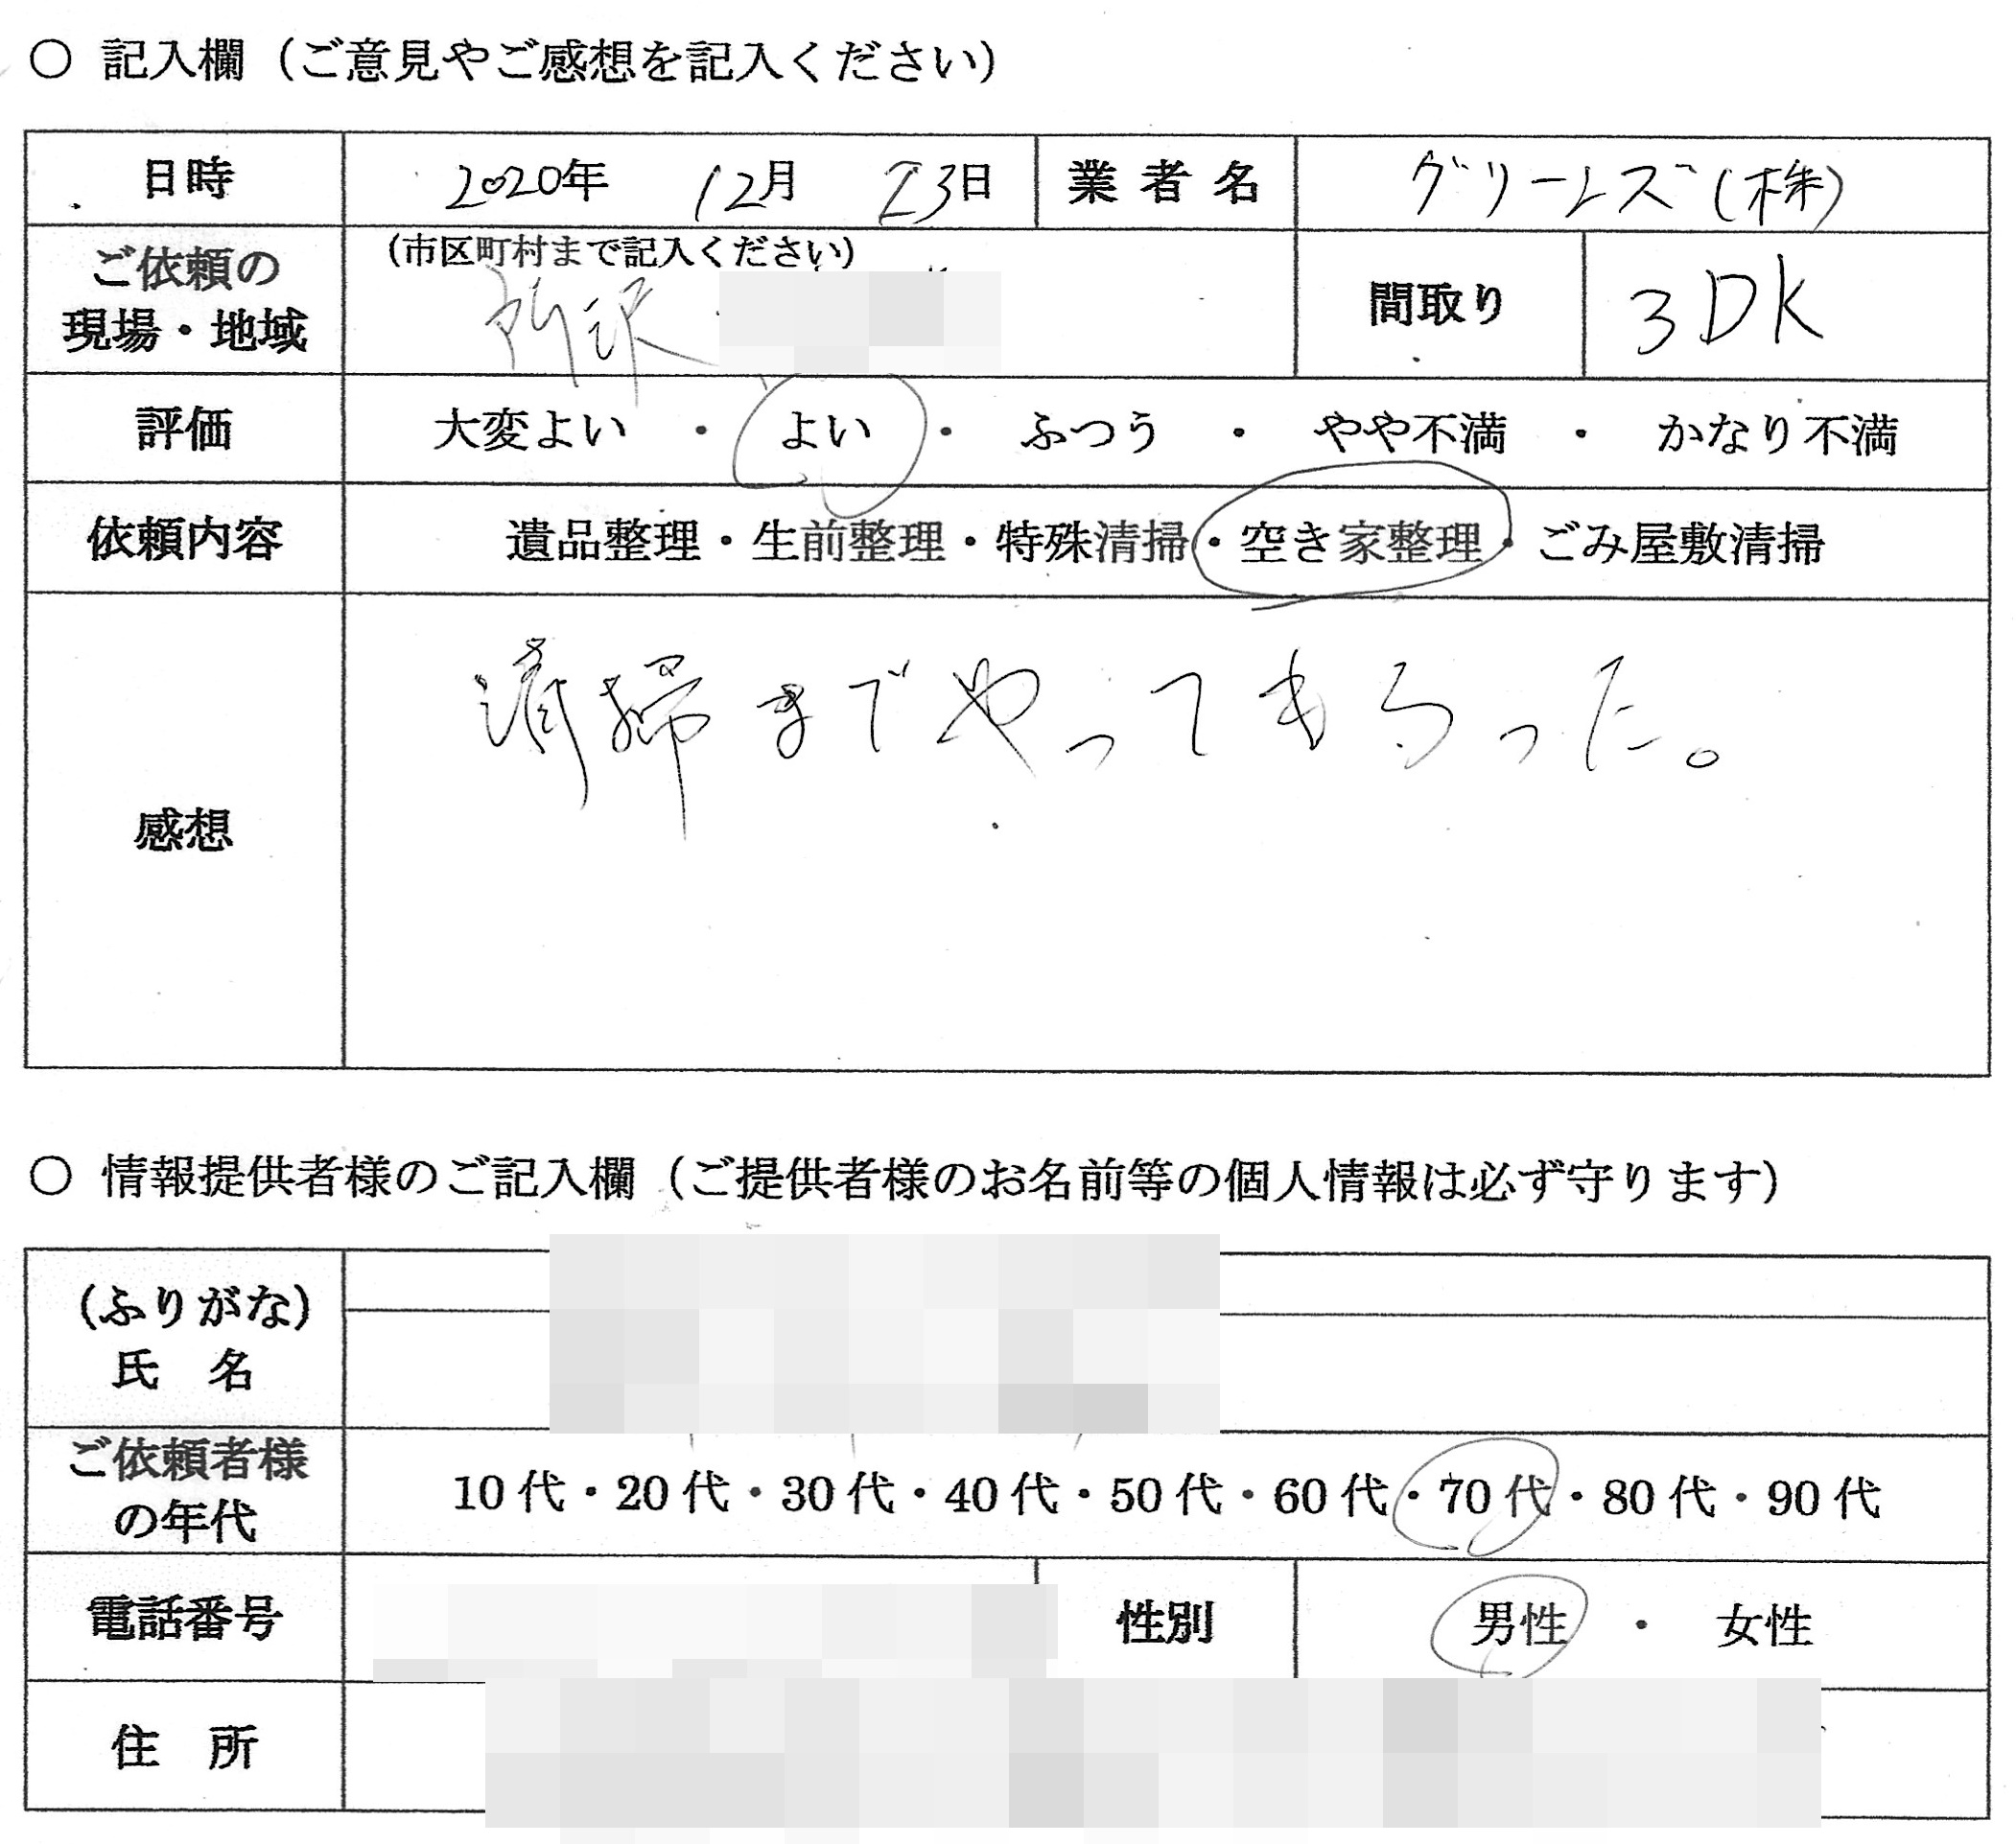 ○ 記入欄（ご意見やご感想を記入ください）
日時 2020年 12月 23日 業者名 グリーンズ(株)
ご依頼の
現場・地域
(市区町村まで記入ください)
所沢
間取り 3DK
評価 大変よい ・ よい ・ ふつう ・ やや不満 ・ かなり不満
依頼内容 遺品整理・生前整理・特殊清掃・空き家整理・ごみ屋敷清掃
感想 清掃までやってもらった。
○ 情報提供者様のご記入欄（ご提供者様のお名前等の個人情報は必ず守ります）
(ふりがな)
氏 名
ご依頼者様
の年代
10代・20代・30代・40代・50代・60代・70代・80代・90代
電話番号 性別 男性 ・ 女性
住 所